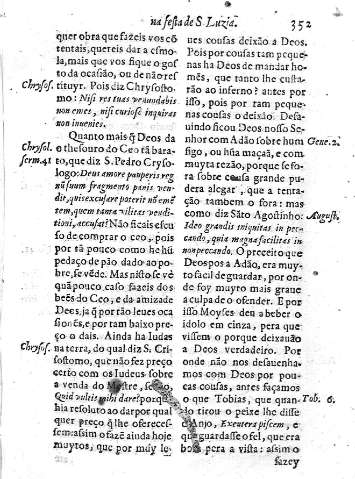 na festa de S. Luzia. 352
quer obra que fazeis vos cõ
tentais, quereis dar a esmo-
la, mais que vos fique o gos-
to da ocasião, ou de não res-
Chrysos. tituyr. Pois diz Chrysosto-
mo: Nisi res tuas
non emes, nisi curiosè inquiras
non inuenies.
Quanto mais q̃ Deos da
Chrysol. o thesouro do Ceo tã bara-
serm. 41 to, que diz S. Pedro Cryso-
logo: Deus amore pauperis reg
nũ suum fragmento panis ven-
dit, quis excusare poterit nõ emẽ
tem, quem tanta vilitas vendi-
tioni, accusat? Não ficais escu-
so de comprar o ceo, pois
por tã pouco como he hũ
pedaço de pão dado ao po-
bre, se vẽde. Mas nisto se vè
quã pouco caso fazeis dos
beẽs do Ceo, e da amizade
Deos, ja q̃ por tão leues oca
siões, e por tam baixo pre-
ço o dais. Ainda ha Iudas
Chrysos. na terra, do qual diz S. Cri-
sostomo, que não fez preço
certo com os Iudeus sobre
a venda do Mestre, senão,
Quid vultis mihi dare? porque
hia resoluto ao dar por qual
quer preço q̃ lhe offereces-
sem: assim o fazẽ ainda hoje
muytos, que por muy le-
ues cousas deixão a Deos.
Pois por cousas tam peque-
nas ha Deos de mandar ho-
mẽs, que tanto lhe custa-
rão ao inferno? antes por
isso, pois por tam peque-
nas cousas o deixão. Desa-
uindo ficou Deos nosso Se-
nhor com Adão sobre hum Gene. 2.
figo, ou hũa maçaã, e com
muyta rezão, porque se fo-
ra sobre cousa grande pu-
dera alegar, que a tenta-
ção tambem o fora: mas
como diz Sãto Agostinho: August.
Ideo grandis iniquitas in pec-
cando, quia magna facilitas in
non peccando. O preceito que
Deos pos a Adão, era muy-
to facil de guardar, por on-
de foy muyro mais graue
a culpa de o ofender. E por
isso Moyses deu a beber o
idolo em cinza, pera que
vissem o porque deixauão
a Deos verdadeiro. Por
onde não nos desauenha-
mos com Deos por pou-
cas cousas, antes façamos
o que Tobias, que quan- Tob. 6.
do tirou o peixe lhe disse
o Anjo, Exentera piscem, e
que guardasse o fel, que era
bom pera a vista: assim o
fazey